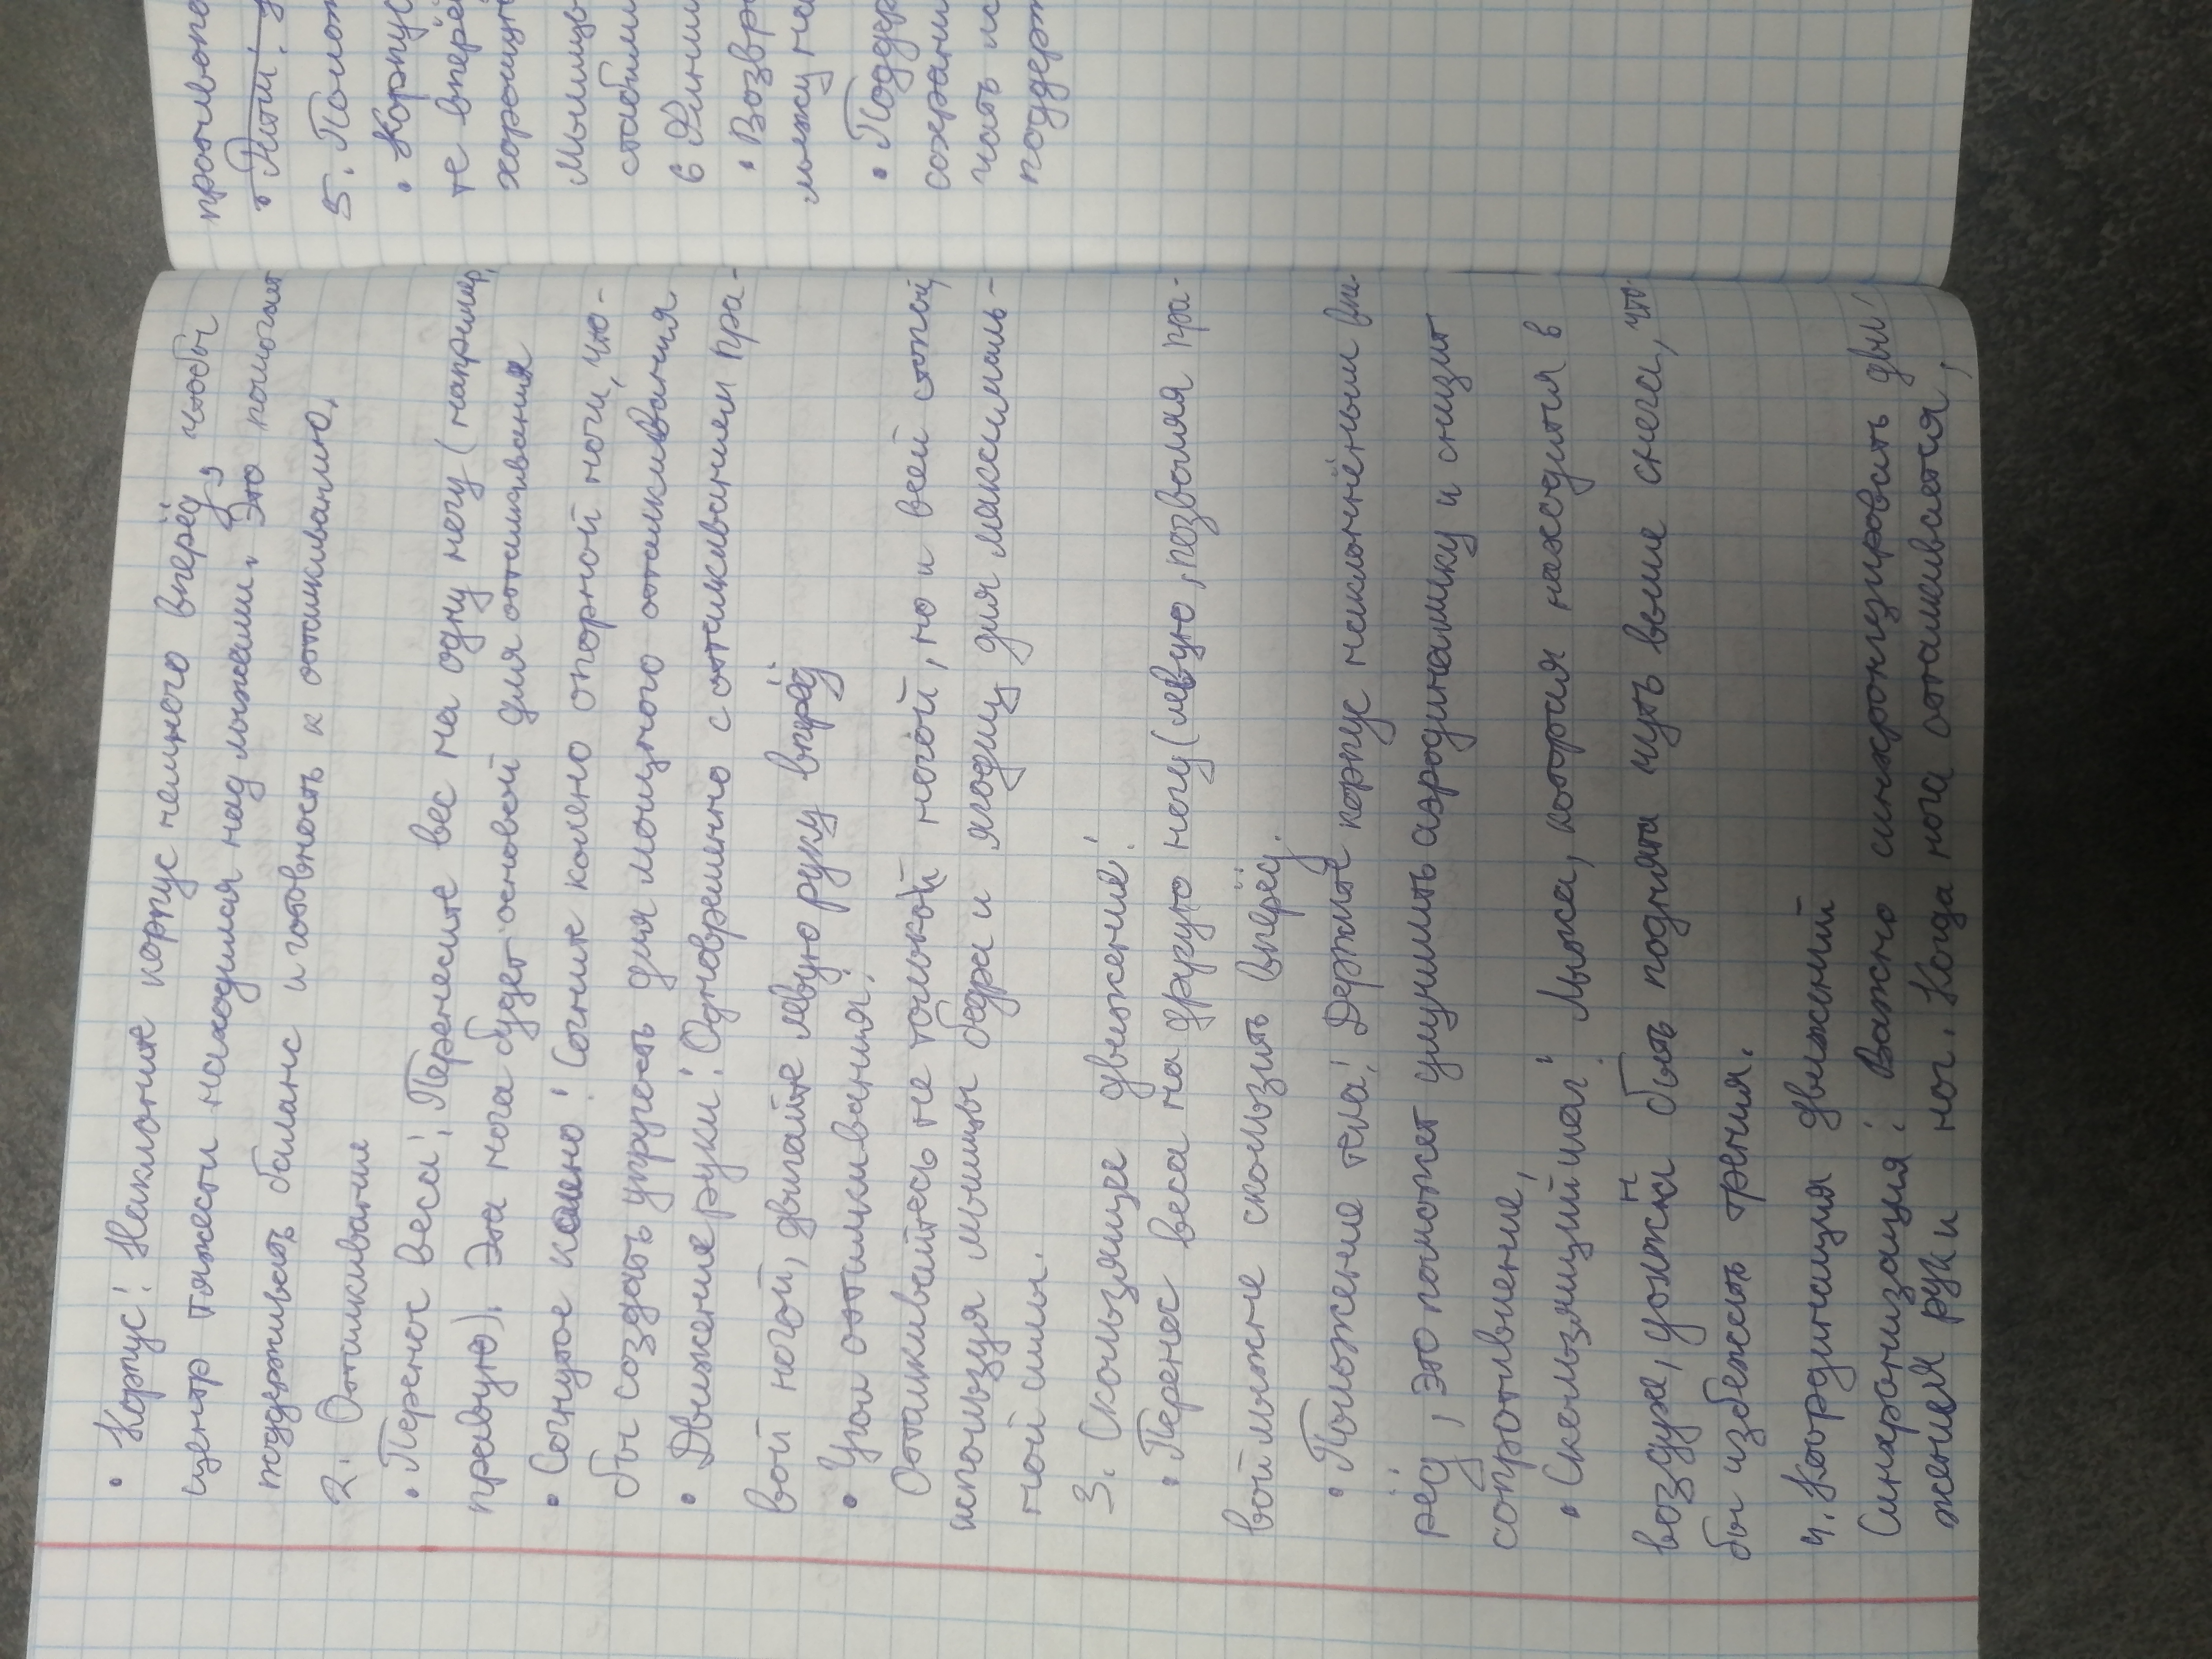 • Корпус: Наклоните корпус немного вперёд, чтобы
центр тяжести находился над лыжами. Это помогает
поддерживать баланс и готовность к отталкиванию.
2. Отталкивание
• Перенос веса: Перенесите вес на одну ногу (например,
правую). Эта нога будет основой для отталкивания
• Согнутое колено: Согните колено опорной ноги, что-
бы создать упругость для мощного отталкивания.
• Движение руки: Одновременно с отталкиванием пра-
вой ногой, двигайте левую руку вперёд
• Угол отталкивания:
Отталкивайтесь не только ногой, но и всей стопой,
используя мышцы бедра и ягодиц для максималь-
ной силы.
3. Скользящее движение:
• Перенос веса на другую ногу (левую, позволяя пра-
вой лыжне скользить вперёд.
• Положение тела: Держите корпус наклонённым впе-
рёд, это поможет улучшить аэродинамику и снизит
сопротивление,
• Скользящий шаг: Лыжа, которая находится в
воздухе, должна быть поднята чуть выше снега, что-
бы избежать трения.
4. Координация движений
Синхронизация: Важно синхронизировать дви-
жения руки и ног. Когда нога отталкивается,
противопо
5. Полож
• Корпус
те вперё
хорошую
Мышцы
стабили
6 Финиш
• Возвра
лыжу на
• Поддер
сохрани
чать ис
поддерж